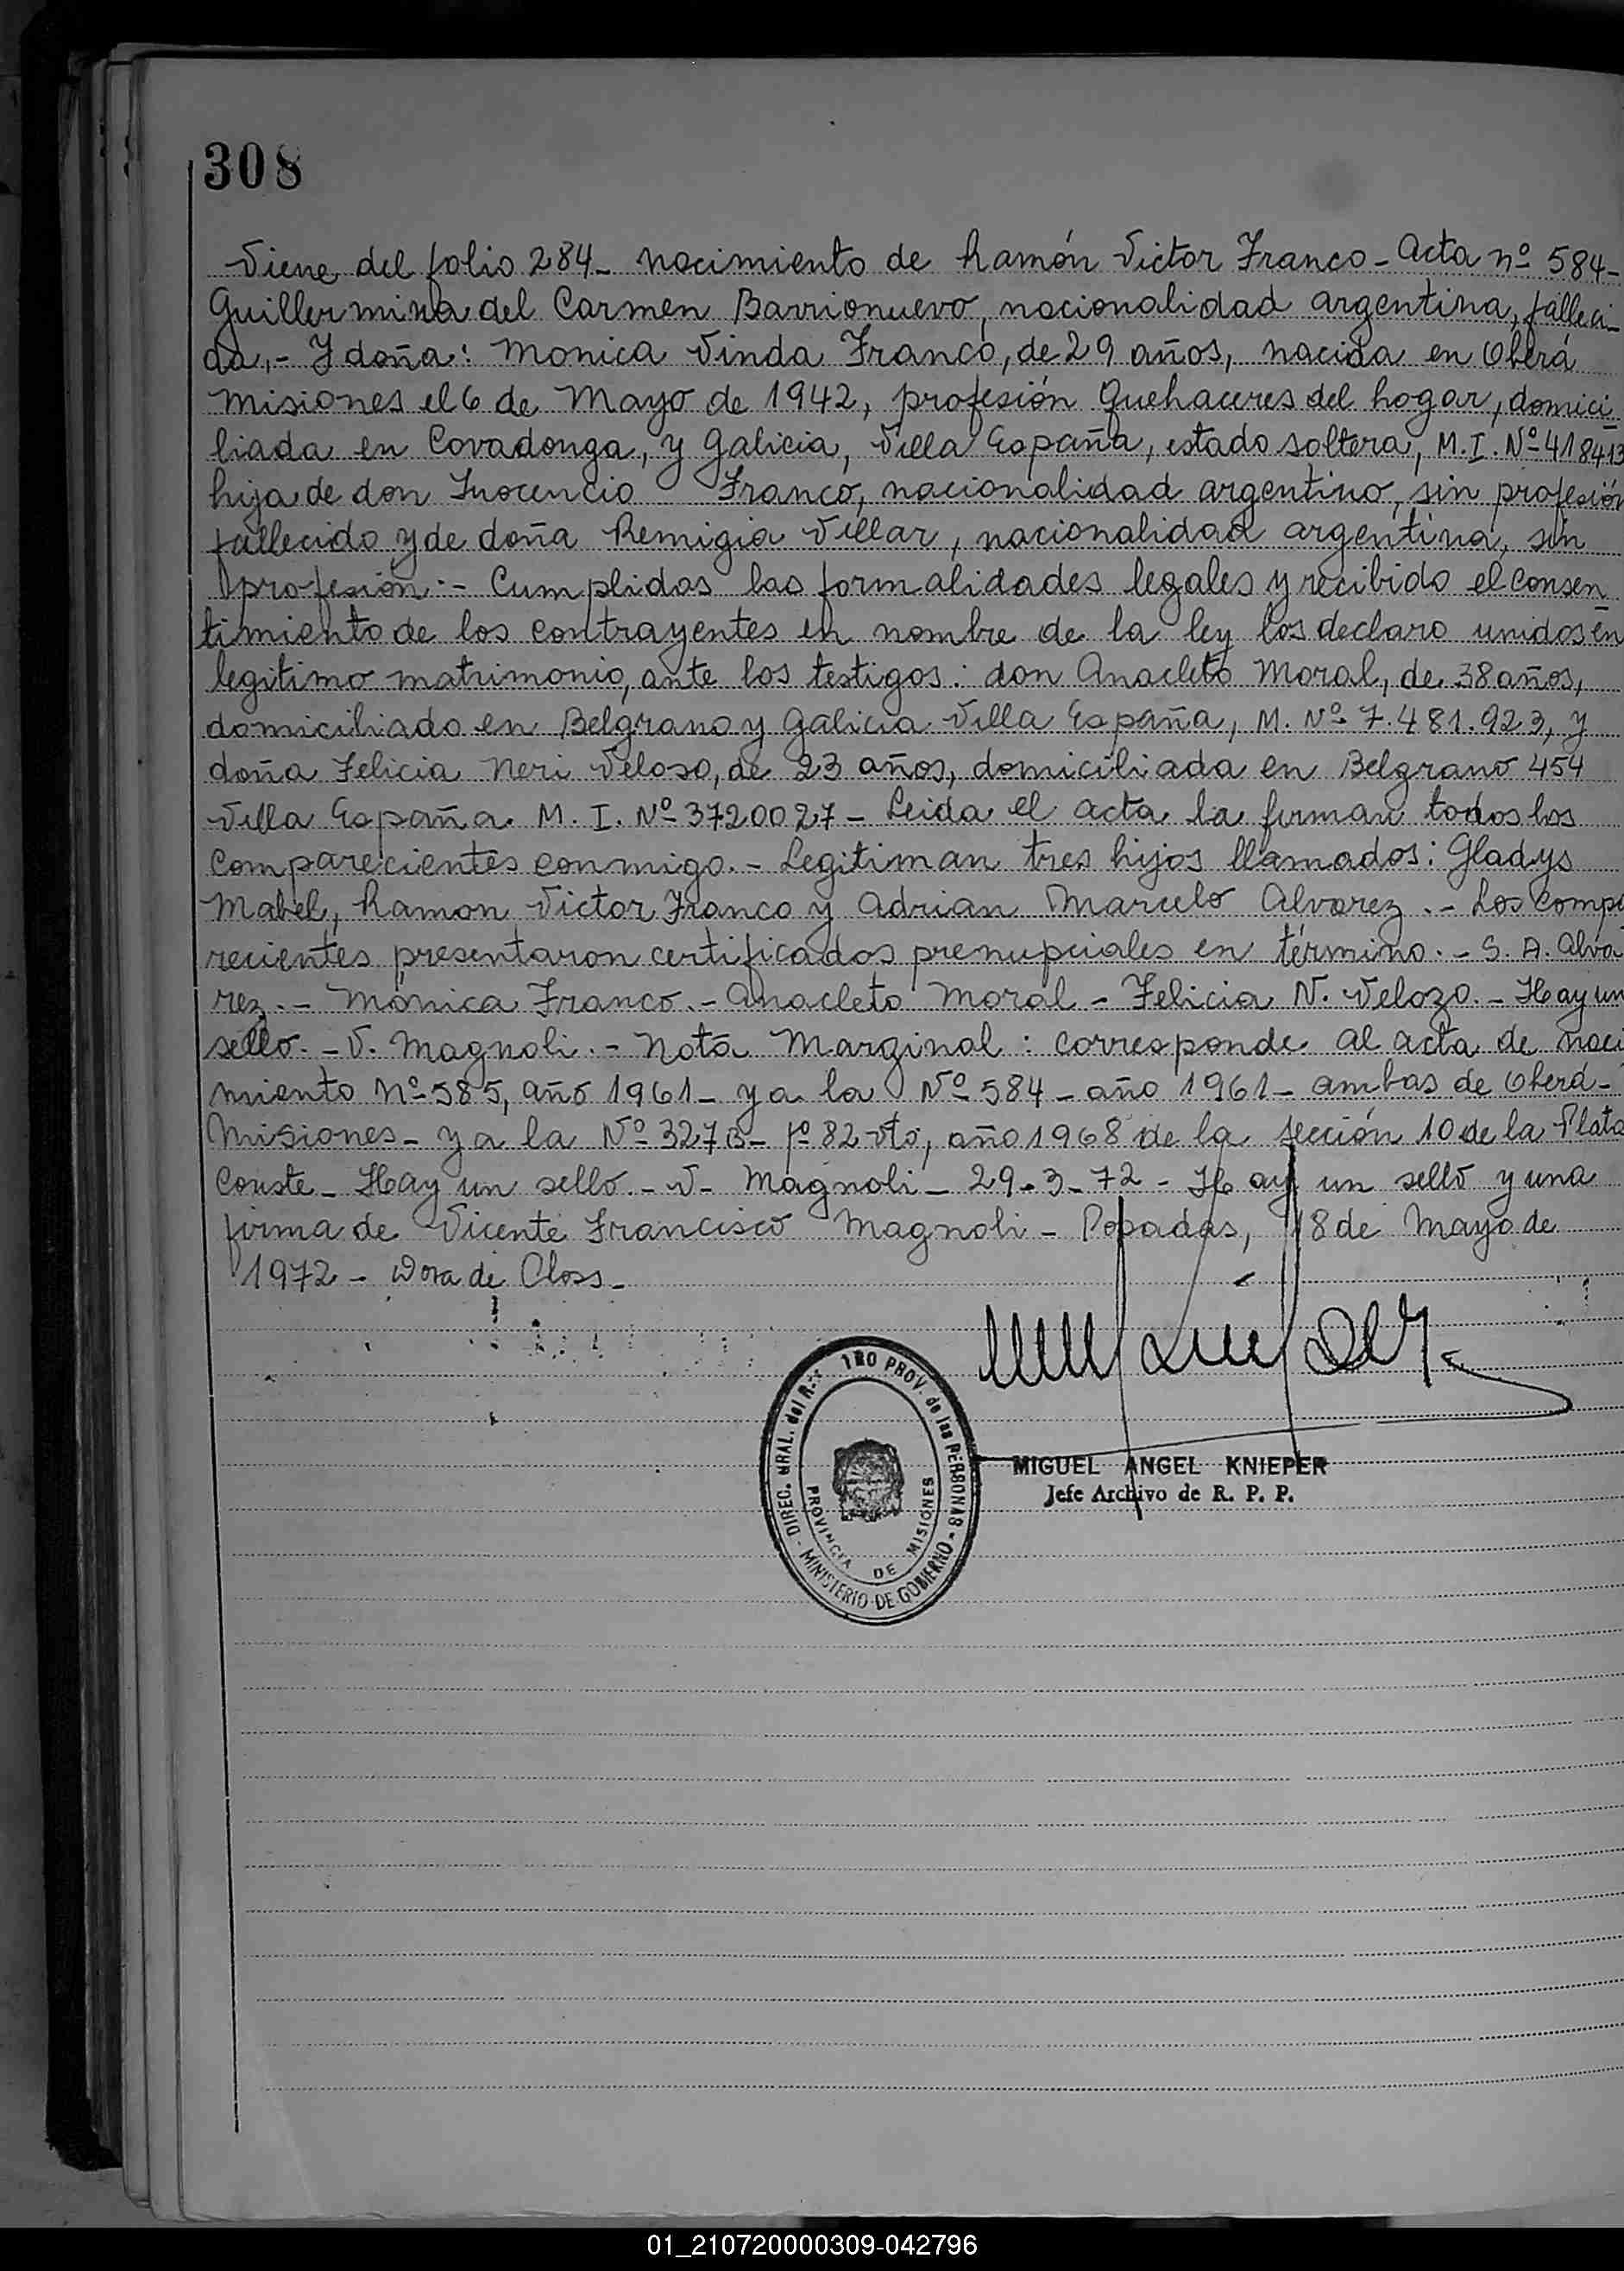 308
Viene del folio 284_ nacimiento de Ramón Victor Franco_ Acta nº 584_
Guillermina del Carmen Barrionuevo, nacionalidad argentina, falleci_
da,- Y doña: Monica Vinda Franco, de 29 años, nacida en Oberá
Misiones el 6 de Mayo de 1942, profesión Quehaceres del hogar, domici_
liada en Covadonga, y Galicia, Villa España, estado soltera, M.I. Nº 418413
hija de don Inocencio Franco, nacionalidad argentino, sin profesión
fallecido y de doña Remigia Villar, nacionalidad argentina, sin
profesión.- Cumplidas las formalidades legales y recibido el consen_
timiento de los contrayentes en nombre de la ley los declaro unidos en
legitimo matrimonio, ante los testigos: don Anacleto Moral, de 38 años,
domiciliado en Belgrano y Galicia Villa España, M. Nº 7.481.923, y
doña Felicia Neri Veloso, de 23 años, domiciliada en Belgrano 454
Villa España. M. I. Nº 3720027- Leida el acta la firman todos los
comparecientes conmigo.- Legitiman tres hijos llamados: Gladys
Mabel, Ramon Victor Franco y Adrian Marcelo Alvarez.- Los compa
recientes presentaron certificados prenupciales en término.- S. A. Alva
rez.- Mónica Franco.- Anacleto Moral- Felicia N. Velozo.- Hay un
sello.- V. Magnoli.- Nota Marginal: corresponde al acta de naci
miento Nº 585, año 1961- y a la Nº 584- año 1961- ambas de Oberá-
Misiones- y a la Nº 327B- fº 82 vto, año 1968 de la sección 10 de la Plata
Conste- Hay un sello.- V- Magnoli- 29-3-72- Hay un sello y una
firma de Vicente Francisco Magnoli- Posadas, 18 de Mayo de
1972- Dora de Closs-
DIREC. GRAL. del R. PROV. de las PERSONAS - MINISTERIO DE GOBIERNO
PROVINCIA DE MISIONES
MIGUEL ANGEL KNIEPER
Jefe Archivo de R. P. P.
01_210720000309-042796